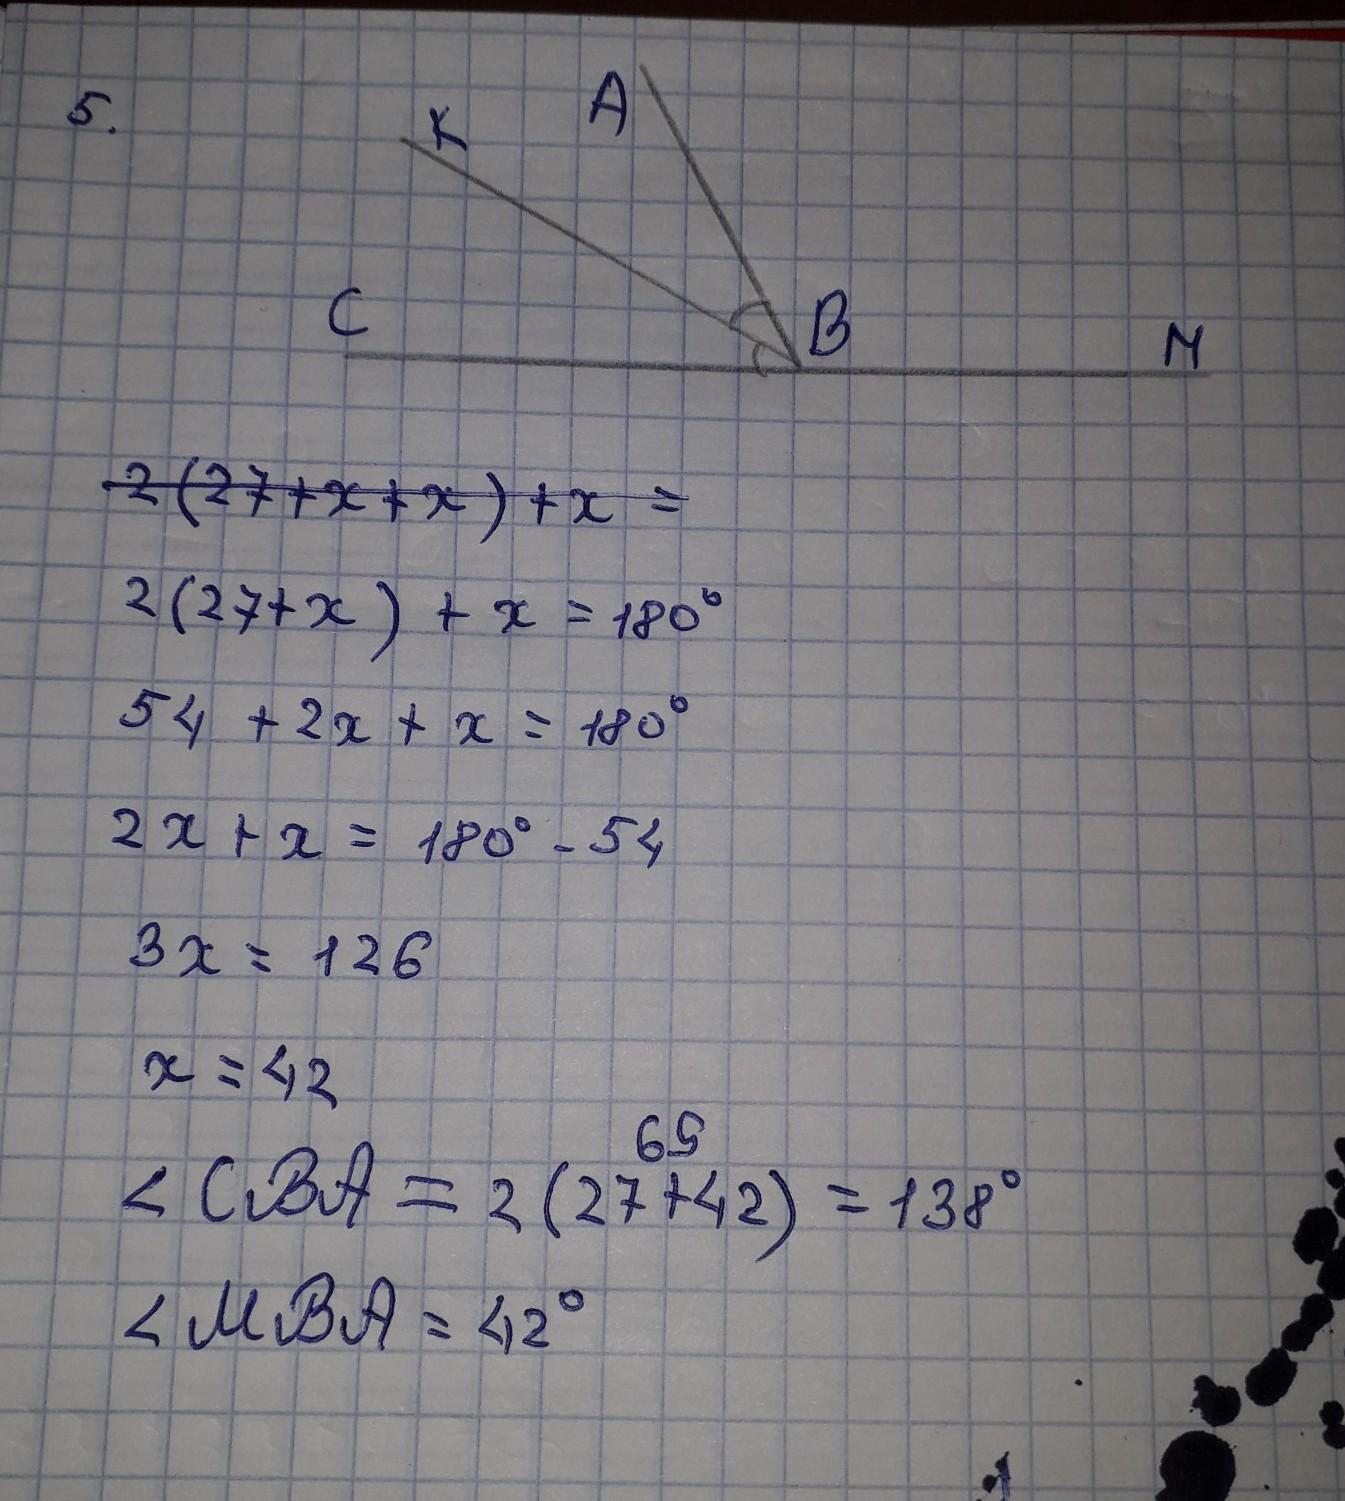 5.
K
A
C
B
M
2(27+x+x)+x=
2(27+x) + x = 180°
54 + 2x + x = 180°
2x + x = 180° - 54
3x = 126
x = 42
69
< CBA = 2(27+42) = 138°
< MBA = 42°